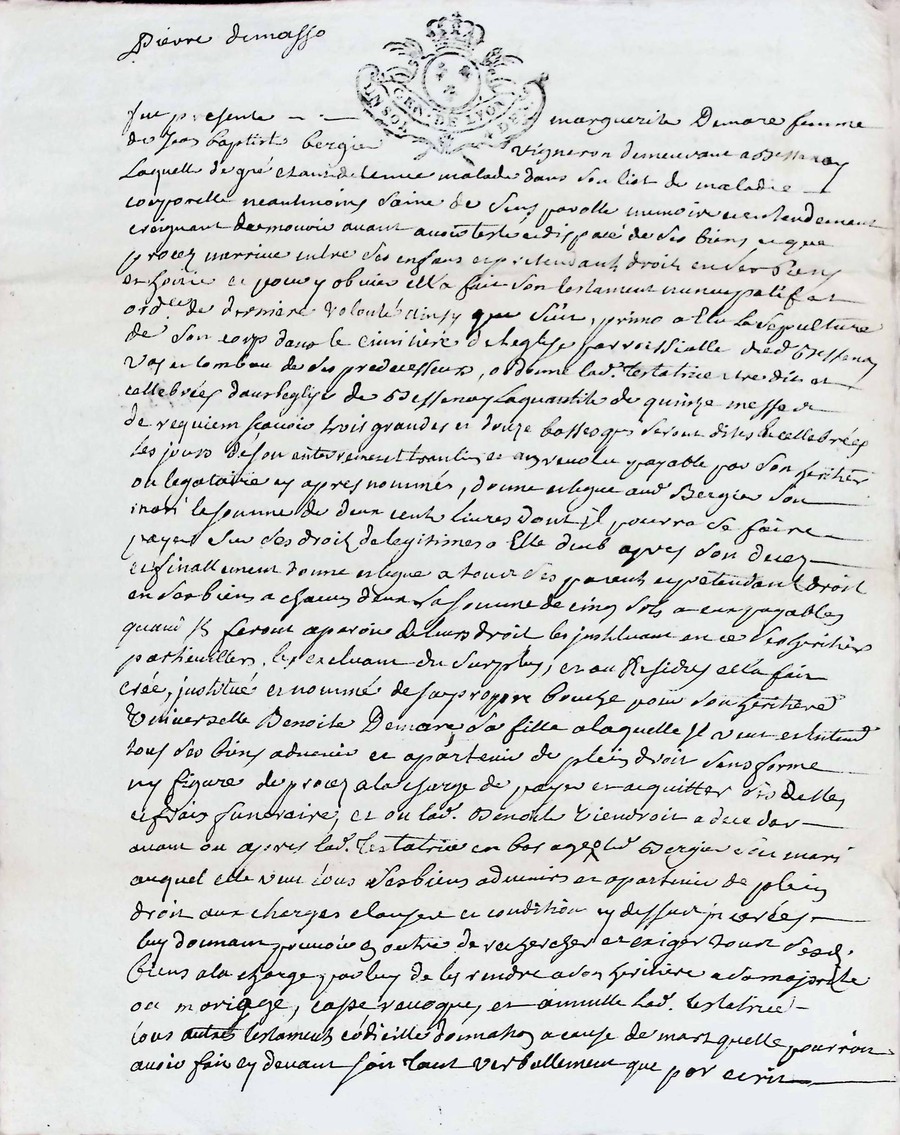 Pierre demasso
GEN. DE LYON
UN SOL
fut presente - - marguerite Demare femme
de Jean baptist bergier vigneron demeurant a Bessenay
Laquelle de gré estant detenue malade dans son lict de maladie
corporelle neautmoins saine de sens parolle memoire et entendement
craignant de mourir avant avoir testé et disposé de ses biens et que
procez narrive entre ses enfans et pretendant droit en ses biens
et hoirie et pour y obvier ella fait son testament nuncupatif et
ordce de derniere volonté ainsy que suit, primo a Elu la sepulture
de son corps dans le cimitiere de leglise parroissialle dud Bessenay
vas et tombau de ses predecesseurs, ordonne lad. testatrice etre dites et
cellebrées dans leglise de Bessenay la quantité de quinze messe de
de requiem scavoir trois grandes et douze basses qui seront dites et cellebrées
les jours de son enterrement trantin et an revolu payable par son heritier
ou legataire cy apres nommés, donne et legue aud Bergier son
mari le somme de deux cent livres dont il pourra se faire
payer sur ses droit de legitimes a Elle dueb apres son decez
et finallement donne et legue a tous ses parent et prétendant droit
en ses biens a chacun deux la somme de cinq sols a eux payables
quand ils feront aparoir de leurs droit les instituant en ce ses heritiers
particuilliers, les excluant du surplus, et au Residus ella fait
créé, institué et nommé de sa propre bouche pour son heritiere
Universelle Benoite Demare sa fille a laquelle il veut et entend
tous ses biens advenir et apartenir de plein droit sans forme
ny figure de procez a la charge de payer et acquitter ses debtes
et frais funeraire, et ou lad. Benoite viendroit a decedar
avant ou apres lad. testatrice en bas age led Bergier son mari
auquel elle veut tous ses biens advenirs et apartenir de plein
droit aux charges clauses et condition cy dessus inserées
luy donnant pouvoir en outre de rechercher et exiger tous sesd.
biens a la charge par luy de les rendre a son heritiere a sa majorité
ou mariage, casse revoque, et annulle lad. testatrice
tous autres testament codicille donnation a cause de mort quelle pourroit
avoir fait cy devant soit tant verballement que par ecrit